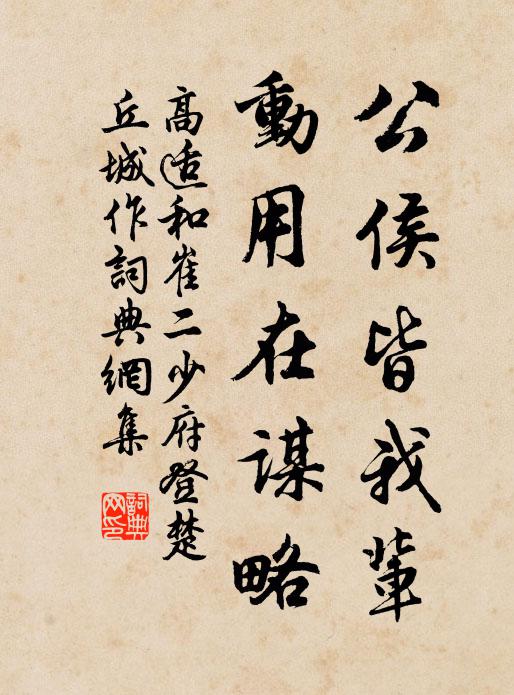 公侯皆我輩
動用在謀略
高适和崔二少府登楚
丘城作詞典網集
詞典
网印